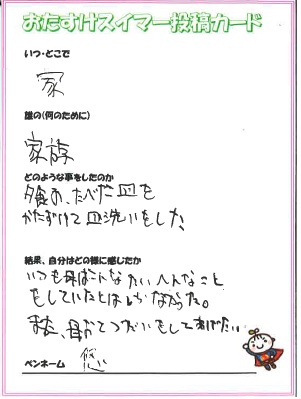 おたすけスイマー投稿カード
いつ・どこで
家
誰の(何のために)
家族
どのような事をしたのか
夕食の、たべた皿を
かたずけて皿洗いをした
結果、自分はどの様に感じたか
いつも母はこんなたいへんなこと
をしていたとはしらなかった。
また、母おてつだいをしてあげたい
ペンネーム 悠い